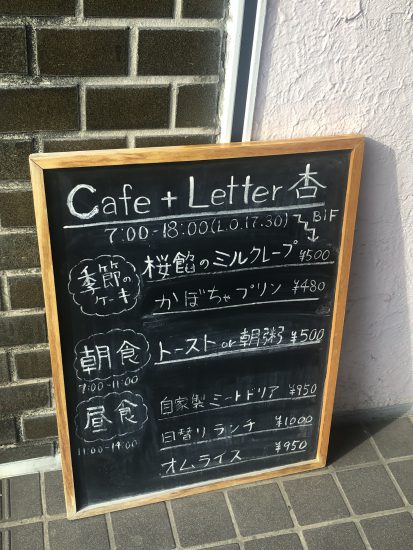 Cafe + Letter 杏
7:00-18:00(L.O.17:30) B1F
季節の
ケーキ
桜餡のミルクレープ ¥500
かぼちゃプリン ¥480
朝食
7:00-11:00
トースト or 朝粥 ¥500
昼食
11:00-14:00
自家製ミートドリア ¥950
日替りランチ ¥1000
オムライス ¥950